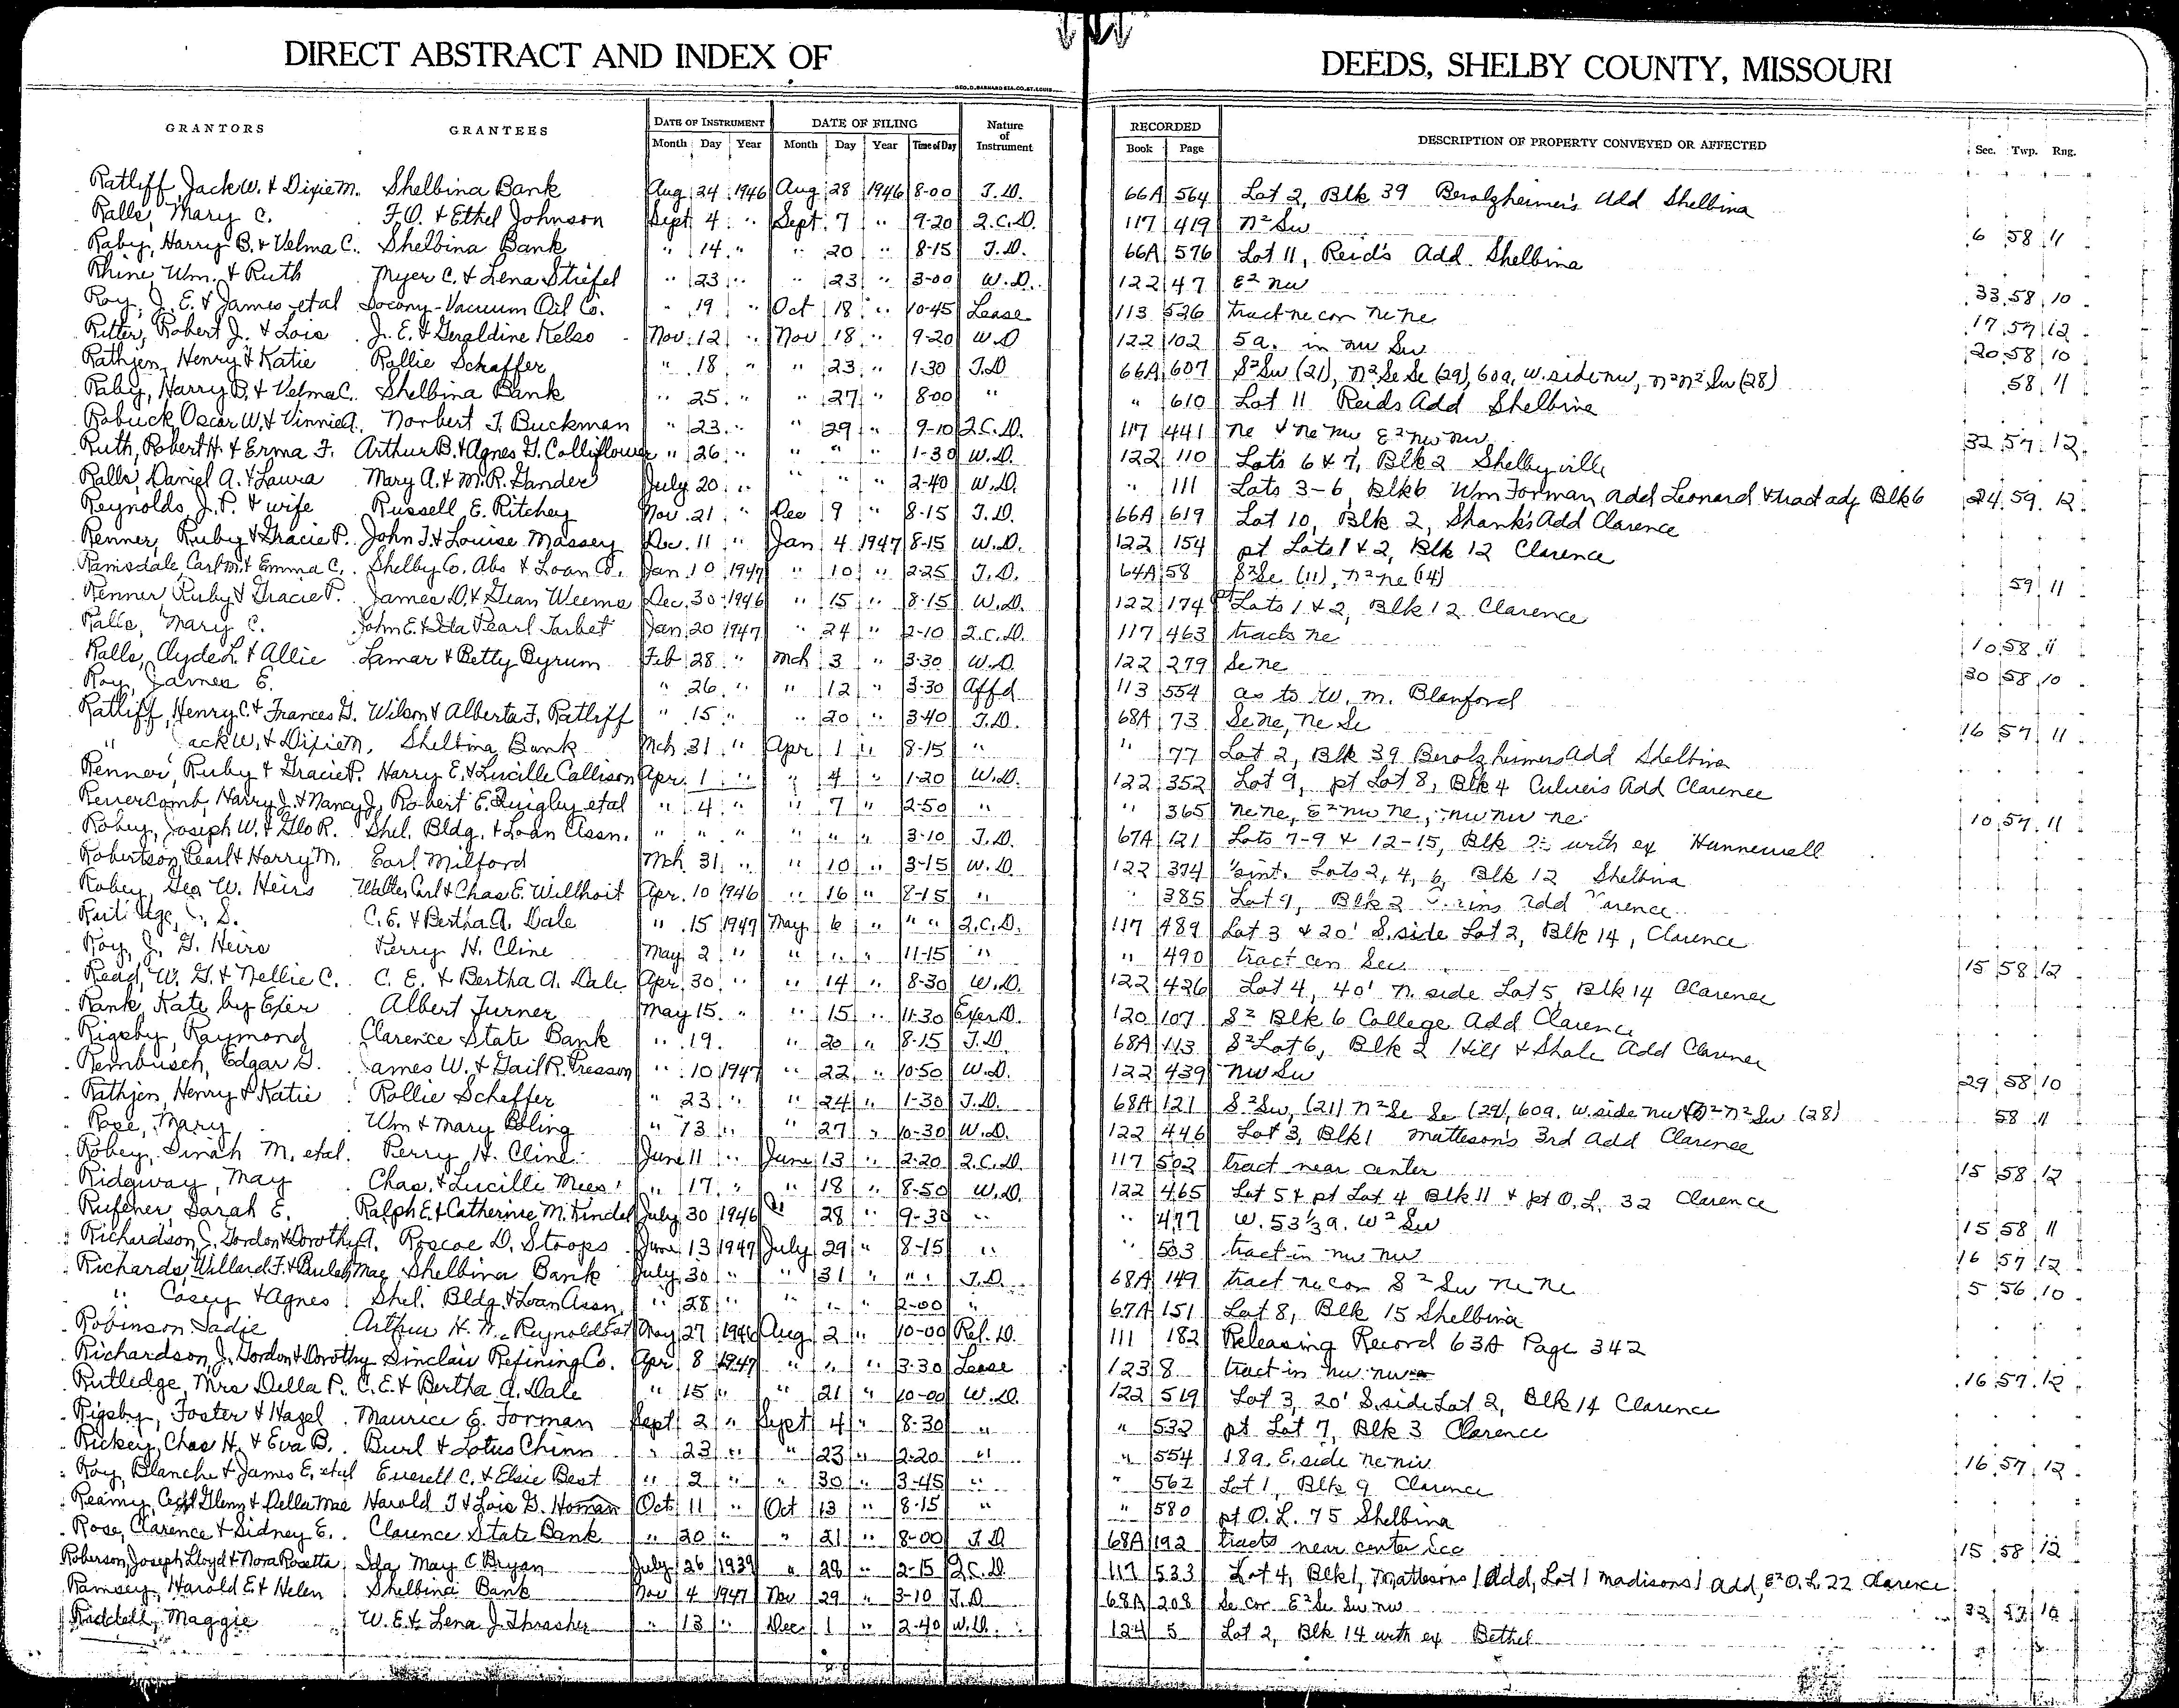 DIRECT ABSTRACT AND INDEX OF DEEDS, SHELBY COUNTY, MISSOURI
GEO. D. BARNARD STA. CO. ST. LOUIS
GRANTORS GRANTEES DATE OF INSTRUMENT DATE OF FILING Nature of Instrument RECORDED DESCRIPTION OF PROPERTY CONVEYED OR AFFECTED Sec. Twp. Rng.
Month Day Year Month Day Year Time of Day Book Page
Ratliff, Jack W. & Dixie M. Shelbina Bank Aug 24 1946 Aug 28 1946 8-00 T.D. 66A 564 Lot 2, Blk 39 Berolzheimer's Add Shelbina
Ralls, Mary C. F.O. & Ethel Johnson Sept 4 " Sept 7 " 9-20 Q.C.D. 117 419 N² Sw 6 58 11
Raby, Harry B. & Velma C. Shelbina Bank " 14 " " 20 " 8-15 T.D. 66A 576 Lot 11, Reid's Add Shelbina
Rhine, Wm. & Ruth Myer C. & Lena Stiefel " 23 " " 23 " 3-00 W.D. 122 47 E² nw 33 58 10
Roy, J. E. & James etal Socony-Vacuum Oil Co. " 19 " Oct 18 " 10-45 Lease 113 526 tract ne cor ne ne 17 57 12
Ritter, Robert J. & Lois J. E. & Geraldine Kelso Nov. 12 " Nov 18 " 9-20 W.D 122 102 5 a. in nw Sw 20 58 10
Rathjen, Henry & Katie Rollie Schaffer " 18 " " 23 " 1-30 T.D 66A 607 S² Sw (21), N² Se Se (29), 60a, W. side nw, N² N² Sw (28) 58 11
Raby, Harry B. & Velma C. Shelbina Bank " 25 " " 27 " 8-00 " " 610 Lot 11 Reids Add Shelbina
Robuck, Oscar W. & Vinnie A. Norbert T. Buckman " 23 " " 29 " 9-10 Q.C.D. 117 441 ne & ne nw E² nw nw 32 57 12
Ruth, Robert H. & Erma F. Arthur B. & Agnes G. Colliflower " 26 " " " " 1-30 W.D. 122 110 Lots 6 & 7, Blk 2 Shelbyville
Ralls, Daniel A. & Laura Mary A. & M.R. Gander July 20 " " " " 2-40 W.D. " 111 Lots 3-6, Blk 6 Wm Forman add Leonard & tract adj Blk 6 24 59 12
Reynolds, J. P. & wife Russell E. Ritchey Nov. 21 " Dec 9 " 8-15 T.D. 66A 619 Lot 10, Blk 2, Shank's Add Clarence
Renner, Ruby & Gracie P. John T. & Louise Massey Dec. 11 " Jan 4 1947 8-15 W.D. 122 154 pt Lots 1 & 2, Blk 12 Clarence
Ramsdale, Carl M. & Emma C. Shelby Co. Abs & Loan Co. Jan 10 1947 " 10 " 2-25 T.D. 64A 58 S² Se (11), N² ne (14) 59 11
Renner Ruby & Gracie P. James D. & Jean Weems Dec. 30 1946 " 15 " 8-15 W.D. 122 174 pt Lots 1 & 2, Blk 12 Clarence
Ralls, Mary C. John E. & Ida Pearl Tarbet Jan 20 1947 " 24 " 2-10 Q.C.D. 117 463 tracts ne 10 58 11
Ralls, Clyde L. & Allie Lamar & Betty Byrum Feb 28 " Mch 3 " 3-30 W.D. 122 279 Se ne 30 58 10
Roy, James E. " 26 " " 12 " 3-30 Affd 113 554 as to W. M. Blanford
Ratliff, Henry C. & Frances G. Wilson & Alberta F. Ratliff " 15 " " 20 " 3-40 T.D. 68A 73 Se ne, ne Se 16 57 11
" Jack W. & Dixie M. Shelbina Bank Mch 31 " Apr 1 " 8-15 " " 77 Lot 2, Blk 39 Berolzheimers Add Shelbina
Renner, Ruby & Gracie P. Harry E. & Lucille Callison Apr. 1 " " 4 " 1-20 W.D. 122 352 Lot 9, pt Lot 8, Blk 4 Culvers Add Clarence
Revercomb, Harry J. & Nancy J. Robert E. Quigley etal " 4 " " 7 " 2-50 " " 365 ne ne, E² nw ne, nw nw ne 10 57 11
Robey, Joseph W. & Glo R. Shel. Bldg. & Loan Assn. " " " " " " 3-10 T.D. 67A 121 Lots 7-9 & 12-15, Blk with ex Hunnewell
Robertson, Pearl & Harry M. Earl Milford Mch 31 " " 10 " 3-15 W.D. 122 374 int. Lots 2, 4, 6, Blk 12 Shelbina
Robey, Geo W. Heirs Walter Carl & Chas. E. Willhoit Apr. 10 1946 " 16 " 8-15 " " 385 Lot 9, Blk 2 add
S. C. E. & Bertha A. Dale " 15 1947 May 6 " " " Q.C.D. 117 489 Lot 3 & 20' S. side Lot 2, Blk 14, Clarence
Roy, J. G. Heirs Perry H. Cline May 2 " " " " 11-15 " " 490 tract cen Sec 15 58 12
Read, W. G. & Nellie C. C. E. & Bertha A. Dale Apr 30 " " 14 " 8-30 W.D. 122 426 Lot 4, 40' N. side Lot 5, Blk 14 Clarence
Rank, Kate by Exer Albert Turner May 15 " " 15 " 11-30 Exer D. 120 107 S² Blk 6 College Add Clarence
Rigsby, Raymond Clarence State Bank " 19 " 20 " 8-15 T.D. 68A 113 S² Lot 6, Blk 2 Hill & Shale Add Clarence
Rembusch, Edgar G. James W. & Gail R. Presson " 10 1947 " 22 " 10-50 W.D. 122 439 nw Sw 29 58 10
Rathjen, Henry & Katie Rollie Scheffer " 23 " " 24 " 1-30 T.D. 68A 121 S² Sw, (21) N² Se Se (29), 60a. W. side nw N² N² Sw (28) 58 11
Rose, Mary Wm & Mary Boling " 13 " " 27 " 10-30 W.D. 122 446 Lot 3, Blk 1 Matteson's 3rd Add Clarence
Robey, Sinah M. etal. Perry H. Cline June 11 " June 13 " 2-20 Q.C.D. 117 502 tract near center 15 58 12
Ridgway, May Chas. & Lucille Mees " 17 " " 18 " 8-50 W.D. 122 465 Lot 5 & pt Lot 4 Blk 11 & pt O.L. 32 Clarence
Rufener, Sarah E. Ralph E. & Catherine M. Kindel July 30 1946 " 28 " 9-30 " " 477 W. 53⅓a. W² Sw 15 58 11
Richardson, J. Gordon & Dorothy A. Roscoe D. Stoops June 13 1947 July 29 " 8-15 " " 503 tract in nw nw 16 57 12
Richards, Willard F. & Beulah Mae Shelbina Bank July 30 " " 31 " " " T.D. 68A 149 tract ne cor S² Sw ne ne 5 56 10
" Casey & Agnes Shel. Bldg. & Loan Assn. " 28 " " " 2-00 " 67A 151 Lot 8, Blk 15 Shelbina
Robinson Sadie Arthur H. N. Reynolds Est May 27 1946 Aug 2 " 10-00 Rel. D. 111 182 Releasing Record 63A Page 342
Richardson, J. Gordon & Dorothy Sinclair Refining Co. Apr 8 1947 " " " 3-30 Lease 123 8 tract in nw nw 16 57 12
Rutledge, Mrs Della P. C. E. & Bertha A. Dale " 15 " " 21 " 10-00 W.D. 122 519 Lot 3, 20' S. side Lot 2, Blk 14 Clarence
Rigsby, Foster & Hazel Maurice E. Forman Sept 2 " Sept 4 " 8-30 " " 532 pt Lot 7, Blk 3 Clarence
Rickey, Chas H. & Eva B. Burl & Lotus Chinn " 23 " " 23 " 2-20 " " 554 18a. E. side ne nw 16 57 12
Roy, Blanche & James E. etal Everett C. & Elsie Best " 2 " " 30 " 3-45 " " 562 Lot 1, Blk 9 Clarence
Reamy, Cecil Glenn & Della Mae Harold T. & Lois G. Homan Oct 11 " Oct 13 " 8-15 " " 580 pt O.L. 75 Shelbina
Rose, Clarence & Sidney E. Clarence State Bank " 20 " " 21 " 8-00 T.D 68A 192 tracts near center Sec 15 58 12
Roberson, Joseph Lloyd & Nora Rosetta Ida May C Bryan July 26 1939 " 28 " 2-15 Q.C.D. 117 533 Lot 4, Blk 1, Mattesons 1 Add, Lot 1 Madisons 1 Add, E² O.L. 22 Clarence
Ramsey, Harold E. & Helen Shelbina Bank Nov 4 1947 Nov 29 " 3-10 T.D. 68A 208 Se cor E² Se Sw nw 32
Riddell, Maggie W. E. & Lena J. Thrasher " 13 " Dec 1 " 2-40 W.D. 124 5 Lot 2, Blk 14 with ex Bethel